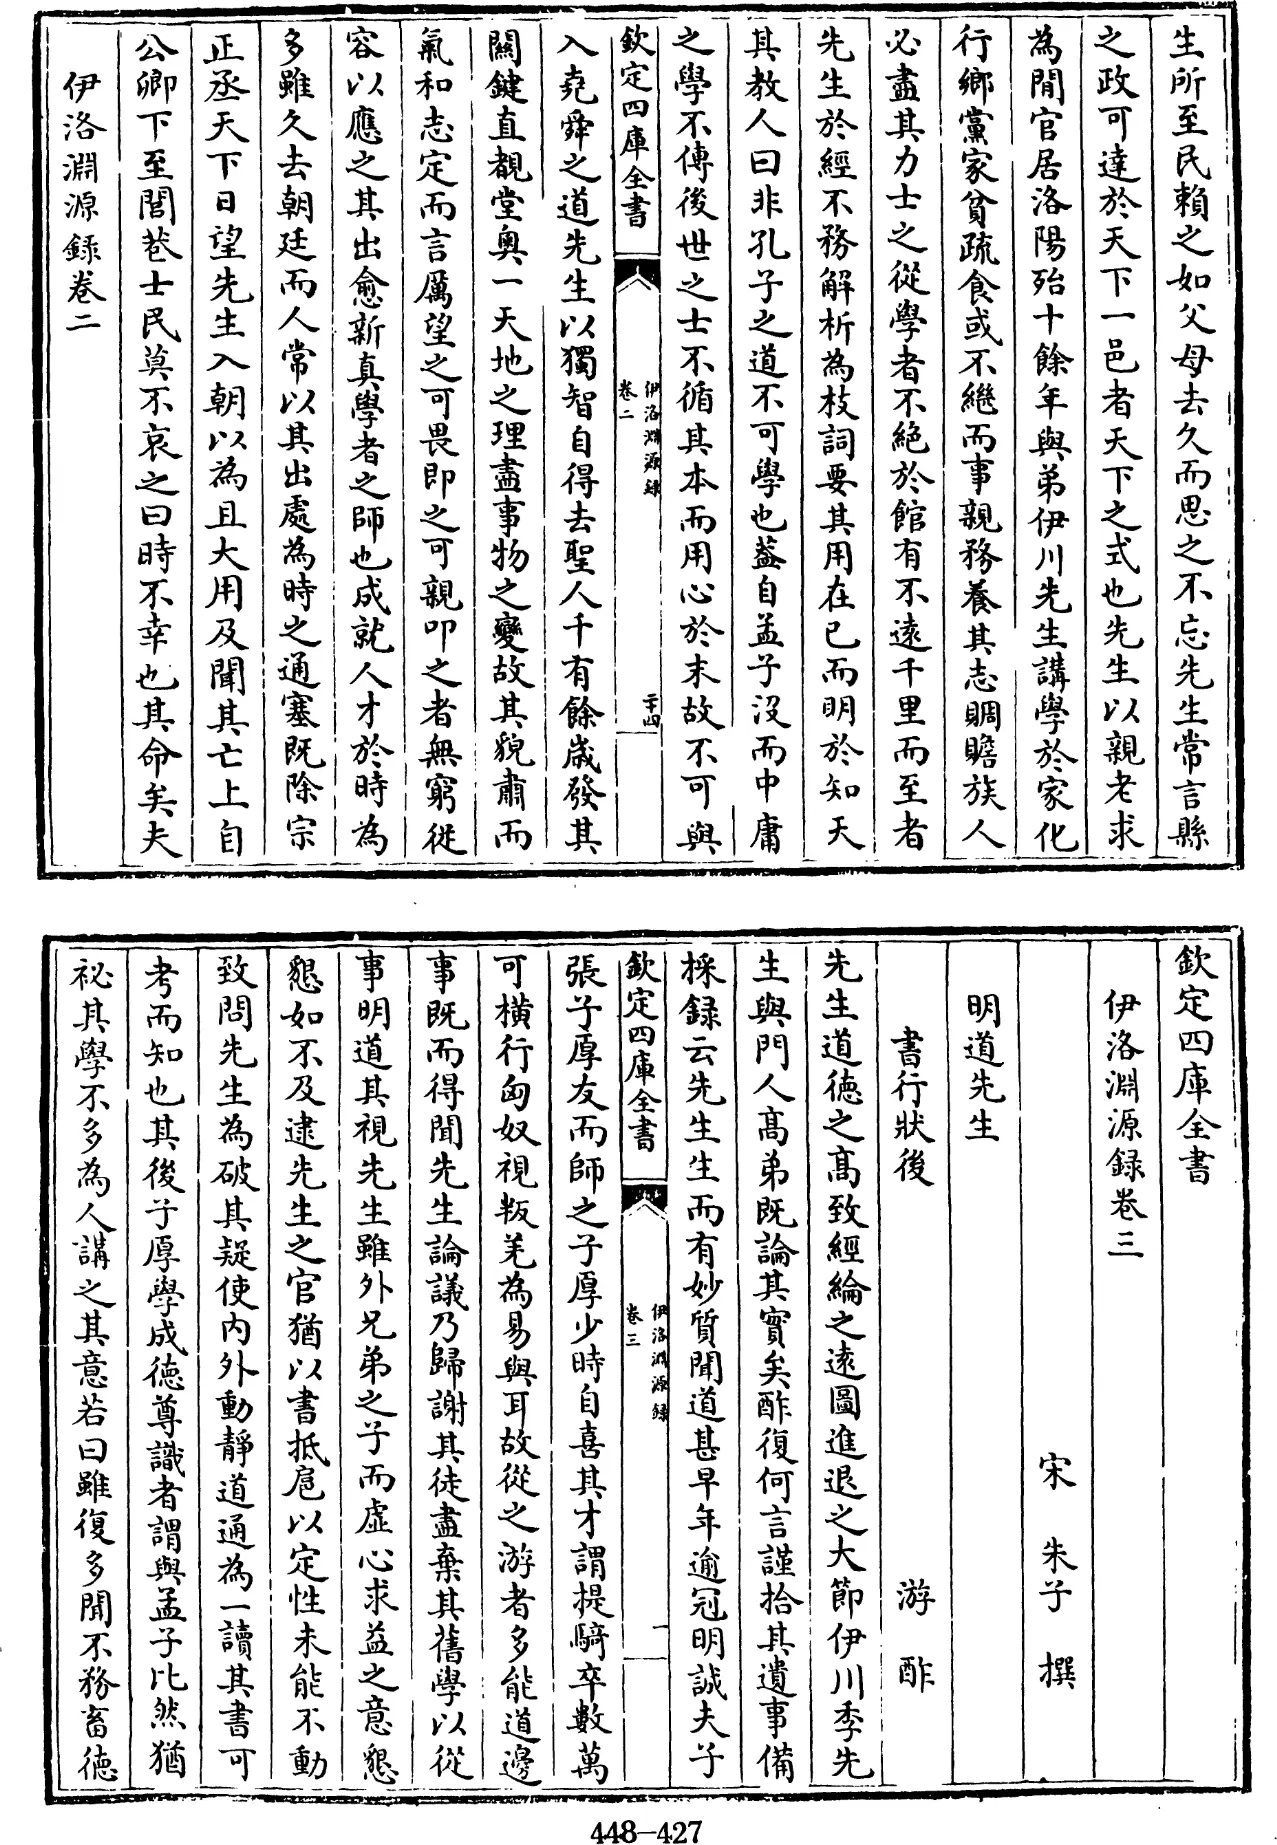 生所至民賴之如父母去久而思之不忘先生常言縣
之政可達於天下一邑者天下之式也先生以親老求
為閒官居洛陽殆十餘年與弟伊川先生講學於家化
行鄉黨家貧疏食或不繼而事親務養其志賙贍族人
必盡其力士之從學者不絶於館有不逺千里而至者
先生於經不務解析為枝詞要其用在已而明於知天
其教人曰非孔子之道不可學也葢自孟子沒而中庸
之學不傳後世之士不循其本而用心於末故不可與
欽定四庫全書
伊洛淵源録
卷二
二十四
入堯舜之道先生以獨智自得去聖人千有餘嵗發其
關鍵直覩堂奧一天地之理盡事物之變故其貌肅而
氣和志定而言厲望之可畏即之可親叩之者無窮從
容以應之其出愈新真學者之師也成就人才於時為
多雖久去朝廷而人常以其出處為時之通塞既除宗
正丞天下日望先生入朝以為且大用及聞其亡上自
公卿下至閭巷士民莫不哀之曰時不幸也其命矣夫
伊洛淵源録卷二
欽定四庫全書
伊洛淵源録卷三
宋 朱子 撰
明道先生
書行狀後 游酢
先生道德之髙致經綸之逺圖進退之大節伊川季先
生與門人髙弟既論其實矣酢復何言謹拾其遺事備
採録云先生生而有妙質聞道甚早年逾冠明誠夫子
欽定四庫全書
伊洛淵源録
卷三
一
張子厚友而師之子厚少時自喜其才謂提騎卒數萬
可橫行匈奴視叛羌為易與耳故從之游者多能道邊
事既而得聞先生論議乃歸謝其徒盡棄其舊學以從
事明道其視先生雖外兄弟之子而虛心求益之意懇
懇如不及逮先生之官猶以書抵扈以定性未能不動
致問先生為破其疑使内外動靜道通為一讀其書可
考而知也其後子厚學成德尊識者謂與孟子比然猶
祕其學不多為人講之其意若曰雖復多聞不務畜德
448-427